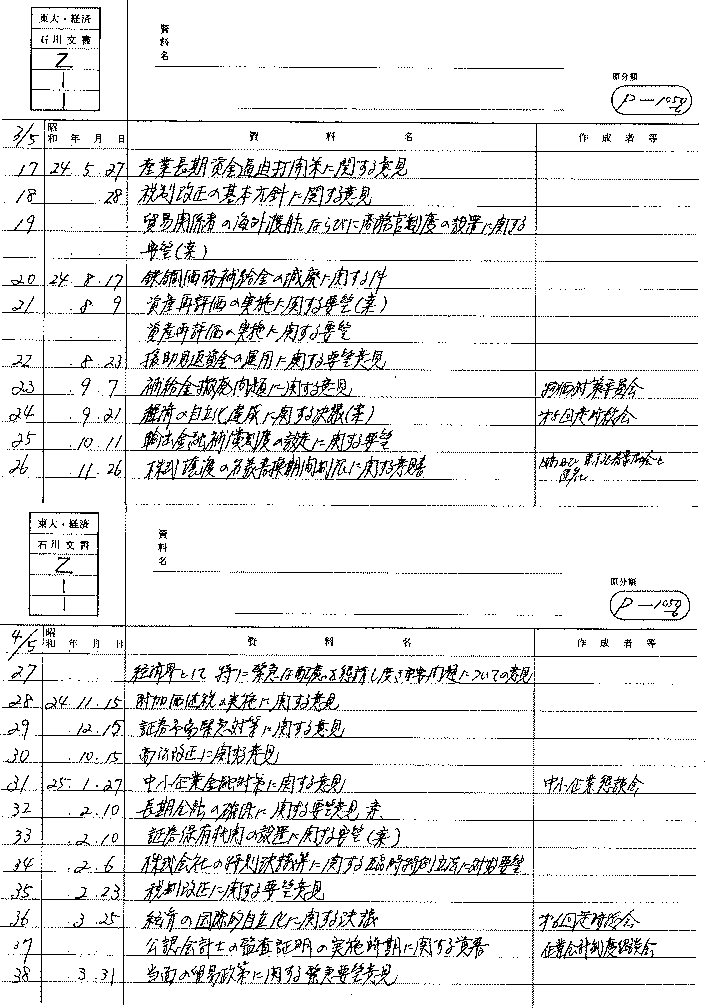 東大・経済
石川文書
Z
1
1
資料名
原分類
P-1059
3/5 昭和 年 月 日 資料名 作成者等
17 24 5 27 産業長期資金逼迫打開策に関する意見
18 28 税制改正の基本方針に関する意見
19 貿易関係者の海外渡航ならびに商務官制度の設置に関する
要望(案)
20 24 8 17 鉄鋼価格補給金の減廃に関する件
21 8 9 資産再評価の実施に関する要望(案)
資産再評価の実施に関する要望
22 8 23 援助見返資金の運用に関する要望意見
23 9 7 補給金撤廃問題に関する意見 物価対策委員会
24 9 21 経済の自立化達成に関する決議(案) 才5回定時総会
25 10 11 輸出金融補償制度の設定に関する要望
26 11 26 株式譲渡の名義書換期間制限に関する意見書
東大・経済
石川文書
Z
1
1
資料名
原分類
P-1059
4/5 昭和 年 月 日 資料名 作成者等
27 経済界として特に緊急なる配慮を 問題についての意見
28 24 11 15 附加価値税の実施に関する意見
29 12 15 証券市場緊急対策に関する意見
30 10 15 商法改正に関する意見
31 25 1 27 中小企業金融対策に関する意見 中小企業懇談会
32 2 10 長期金融の確保に関する要望意見 案
33 2 10 証券保有機関の設置に関する要望(案)
34 2 6 株式会社の特別決議等に関する臨時特例立法に対する要望
35 2 23 税制改正に関する要望意見
36 3 25 経済の国際的自立化に関する決議 才6回定時総会
37 公認会計士の監査証明の実施時期に関する意見書 企業会計制度懇談会
38 3 31 当面の貿易政策に関する緊急要望意見